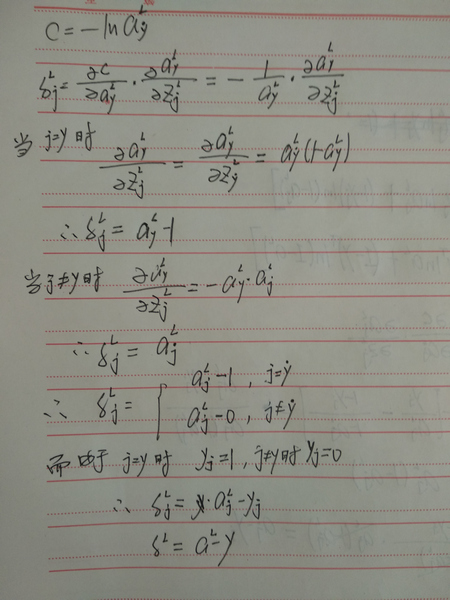 C = -ln a_y^L
δ_j^L = ∂C/∂a_y^L · ∂a_y^L/∂z_j^L = - 1/a_y^L · ∂a_y^L/∂z_j^L
当 j=y 时
∂a_y^L/∂z_j^L = ∂a_y^L/∂z_y^L = a_y^L(1-a_y^L)
∴ δ_j^L = a_y^L-1
当 j≠y 时 ∂a_y^L/∂z_j^L = -a_y^L · a_j^L
∴ δ_j^L = a_j^L
∴ δ_j^L = { a_j^L-1, j=y
a_j^L-0, j≠y
而由于 j=y 时 y_j=1, j≠y 时 y_j=0
∴ δ_j^L = a_j^L-y_j
δ^L = a^L-y